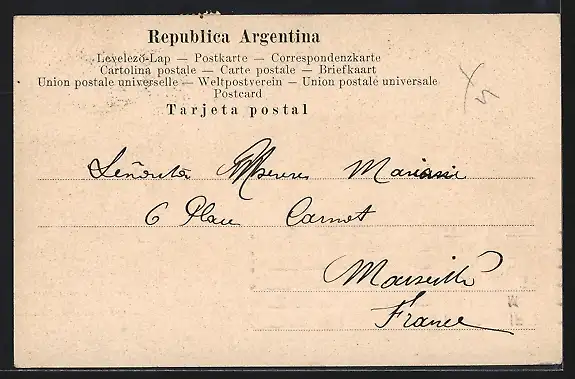 Republica Argentina
Levelező-Lap — Postkarte — Correspondenzkarte
Cartolina postale — Carte postale — Briefkaart
Union postale universelle — Weltpostverein — Union postale universale
Postcard
Tarjeta postal
Señorita Mariani
6 Place Carnot
Marseille
France